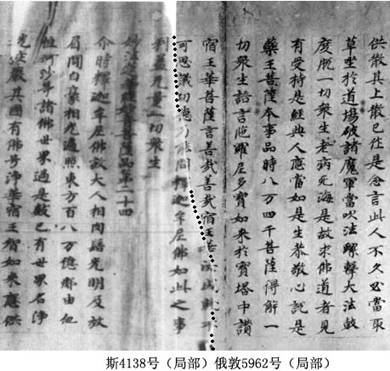 供散其上散已作是念言此人不久必當取
草坐於道場破諸魔軍當吹法螺擊大法鼓
度脫一切衆生老病死海是故求佛道者見
有受持是經典人應當如是生恭敬心說是
藥王菩薩本事品時八万四千菩薩得解一
切衆生語言陁羅尼多寶如來於寶塔中讚
宿王華菩薩言善哉善哉宿王華汝成就不
可思議功德乃能問釋迦牟尼佛如此之事
利益无量一切衆生
妙法蓮華經妙音菩薩品第二十四
尒時釋迦牟尼佛放大人相肉髻光明及放
眉間白豪相光遍照東方百八万億那由他
恒河沙等諸佛世界過是數已有世界名淨
光莊嚴其國有佛号淨華宿王智如來應供
斯4138号（局部）俄敦5962号（局部）